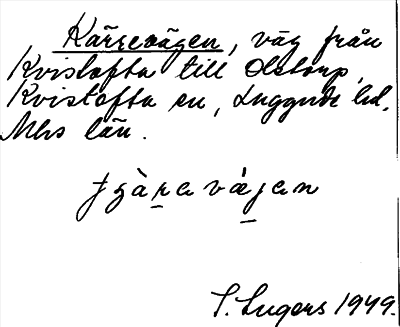 Kärrevägen, väg från
Kvistofta till Olstorp,
Kvistofta sn, Luggude hd,
Mhs län.
ʃɡàra vájan
S. Ingers 1949.